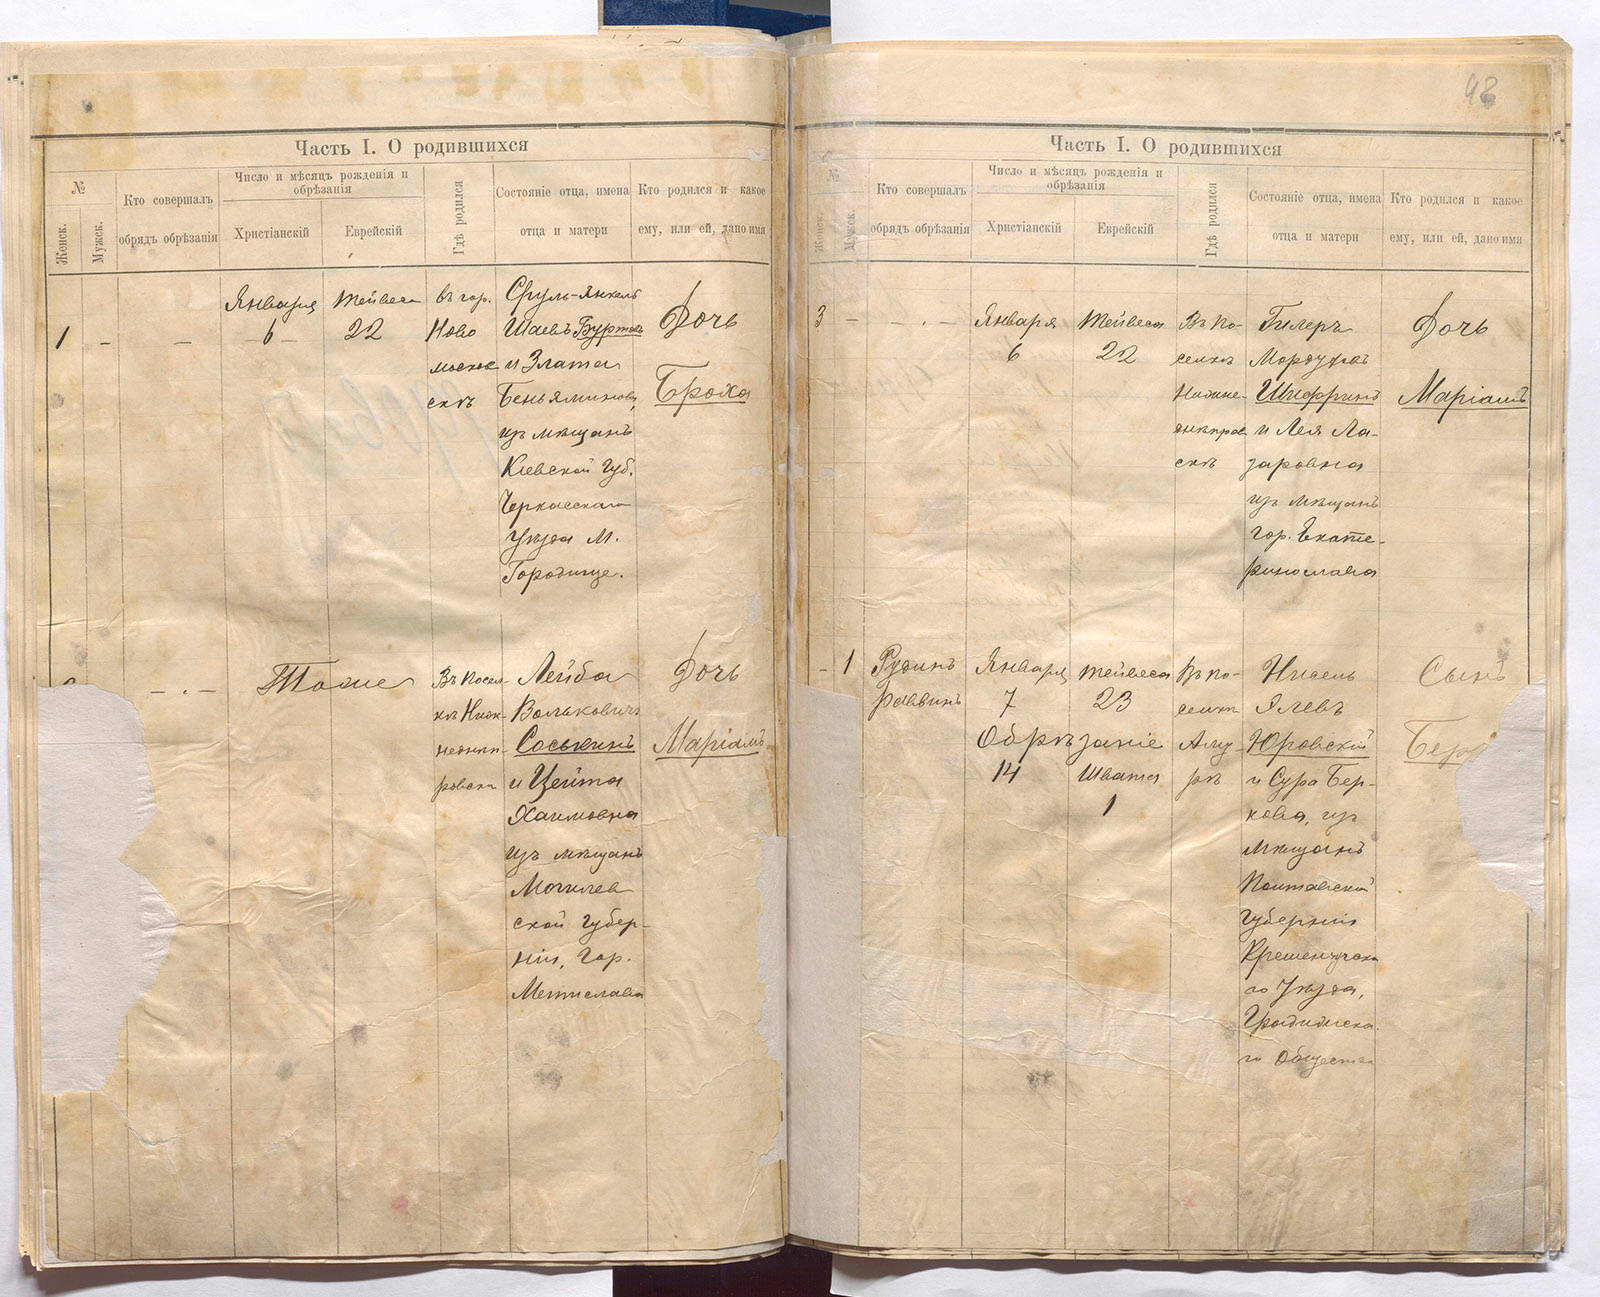 98
Часть I. О родившихся
№
Женск.
Мужск.
Кто совершалъ
обрядъ обрѣзанія
Число и мѣсяцъ рожденія и
обрѣзанія
Христіанскій
Еврейскій
Гдѣ родился
Состояніе отца, имена
отца и матери
Кто родился и какое
ему, или ей, дано имя
1
-
-
-
Января
- 6 -
Тейвеса
22
въ гор.
Ново
москов
скъ
Сруль-Янкель
Шаевъ
и Злата
Беньяминова,
изъ мѣщанъ
Кіевской Губ.
Черкасскаго
Уѣзда М.
Городище.
Дочь
Броха
- . -
Тоже
Въ Посел-
кѣ Ниж-
неднѣп-
ровскѣ
Лейба
Вольковичъ
Соськинъ
и Цейта
Хаимовна
изъ мѣщанъ
Могилев
ской Губер-
ніи, гор.
Мстиславля
Дочь
Маріамъ
Часть I. О родившихся
№
Женск.
Мужск.
Кто совершалъ
обрядъ обрѣзанія
Число и мѣсяцъ рожденія и
обрѣзанія
Христіанскій
Еврейскій
Гдѣ родился
Состояніе отца, имена
отца и матери
Кто родился и какое
ему, или ей, дано имя
3
-
- . -
Января
6
Тейвеса
22
Въ По-
селкѣ
Нижне-
днѣпров
скѣ
Гилеръ
Мордуховъ
Шифринъ
и Лея Ла-
заровна
изъ мѣщанъ
гор. Екате-
ринослава
Дочь
Маріамъ
-
1
Рудинъ
раввинъ
Января
7
Обрѣзаніе
14
Тейвеса
23
Швата
1
Въ По-
селкѣ
Аму-
рѣ
Нисель
Юровскій
и Сура Бер-
кова, изъ
мѣщанъ
Полтавской
Губерніи
Кременчугска
го Уѣзда,
Градижска-
го Общества
Сынъ